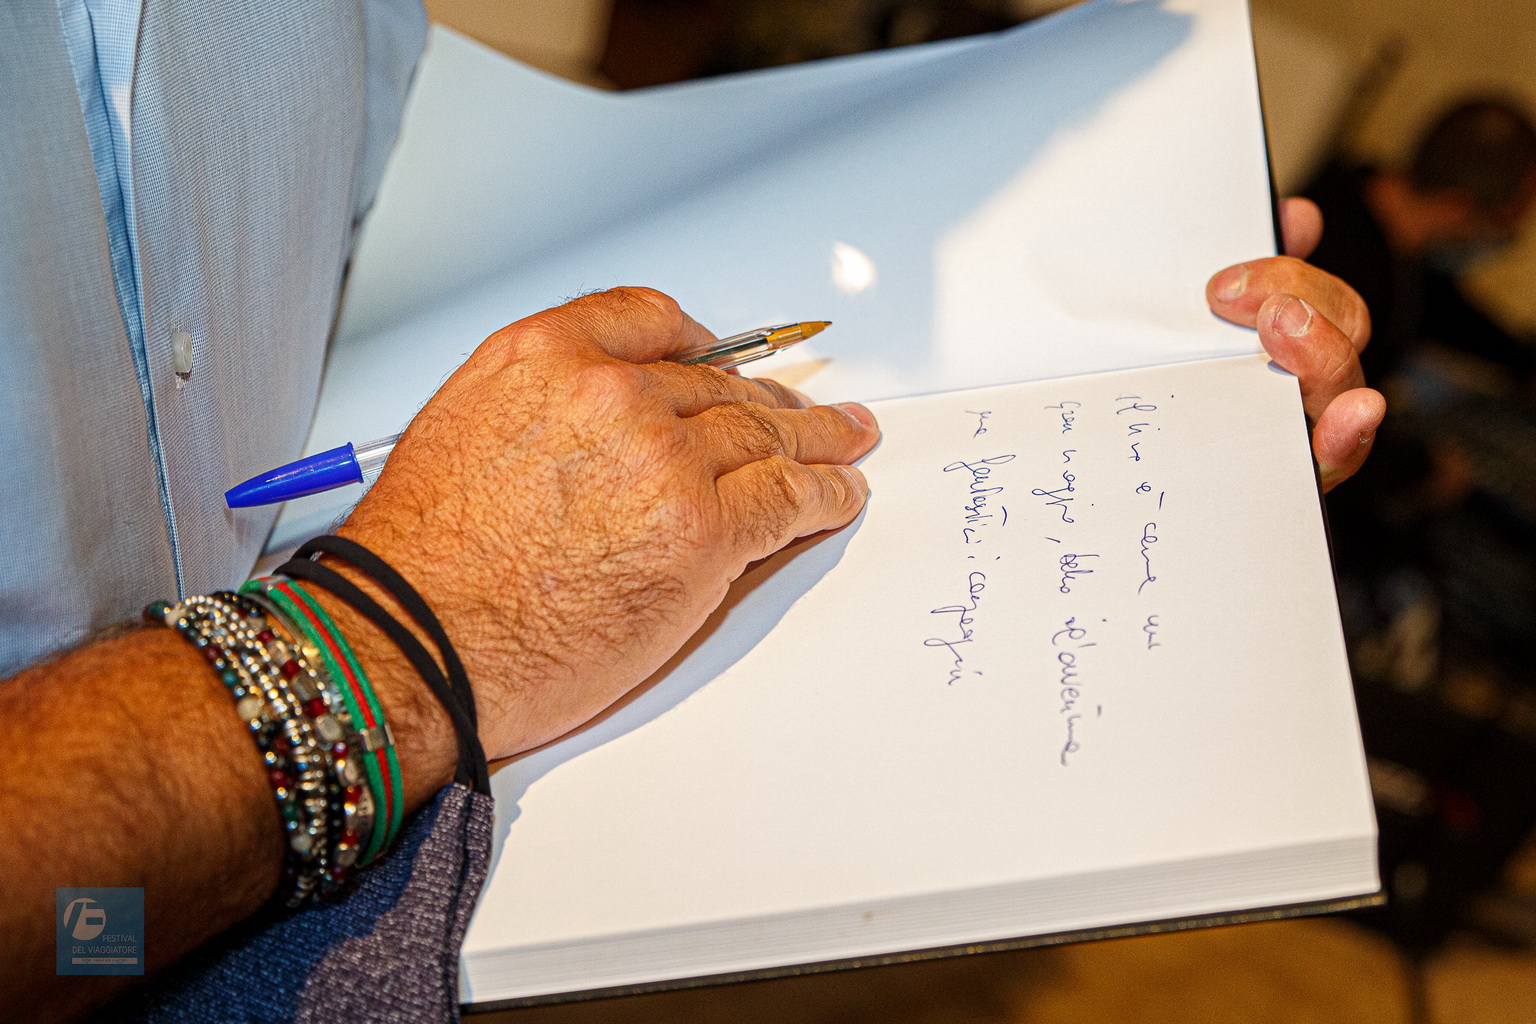 Il libro è come un
gran viaggio, bello è l'avventura
ma fantastici i compagni
FESTIVAL
DEL VIAGGIATORE